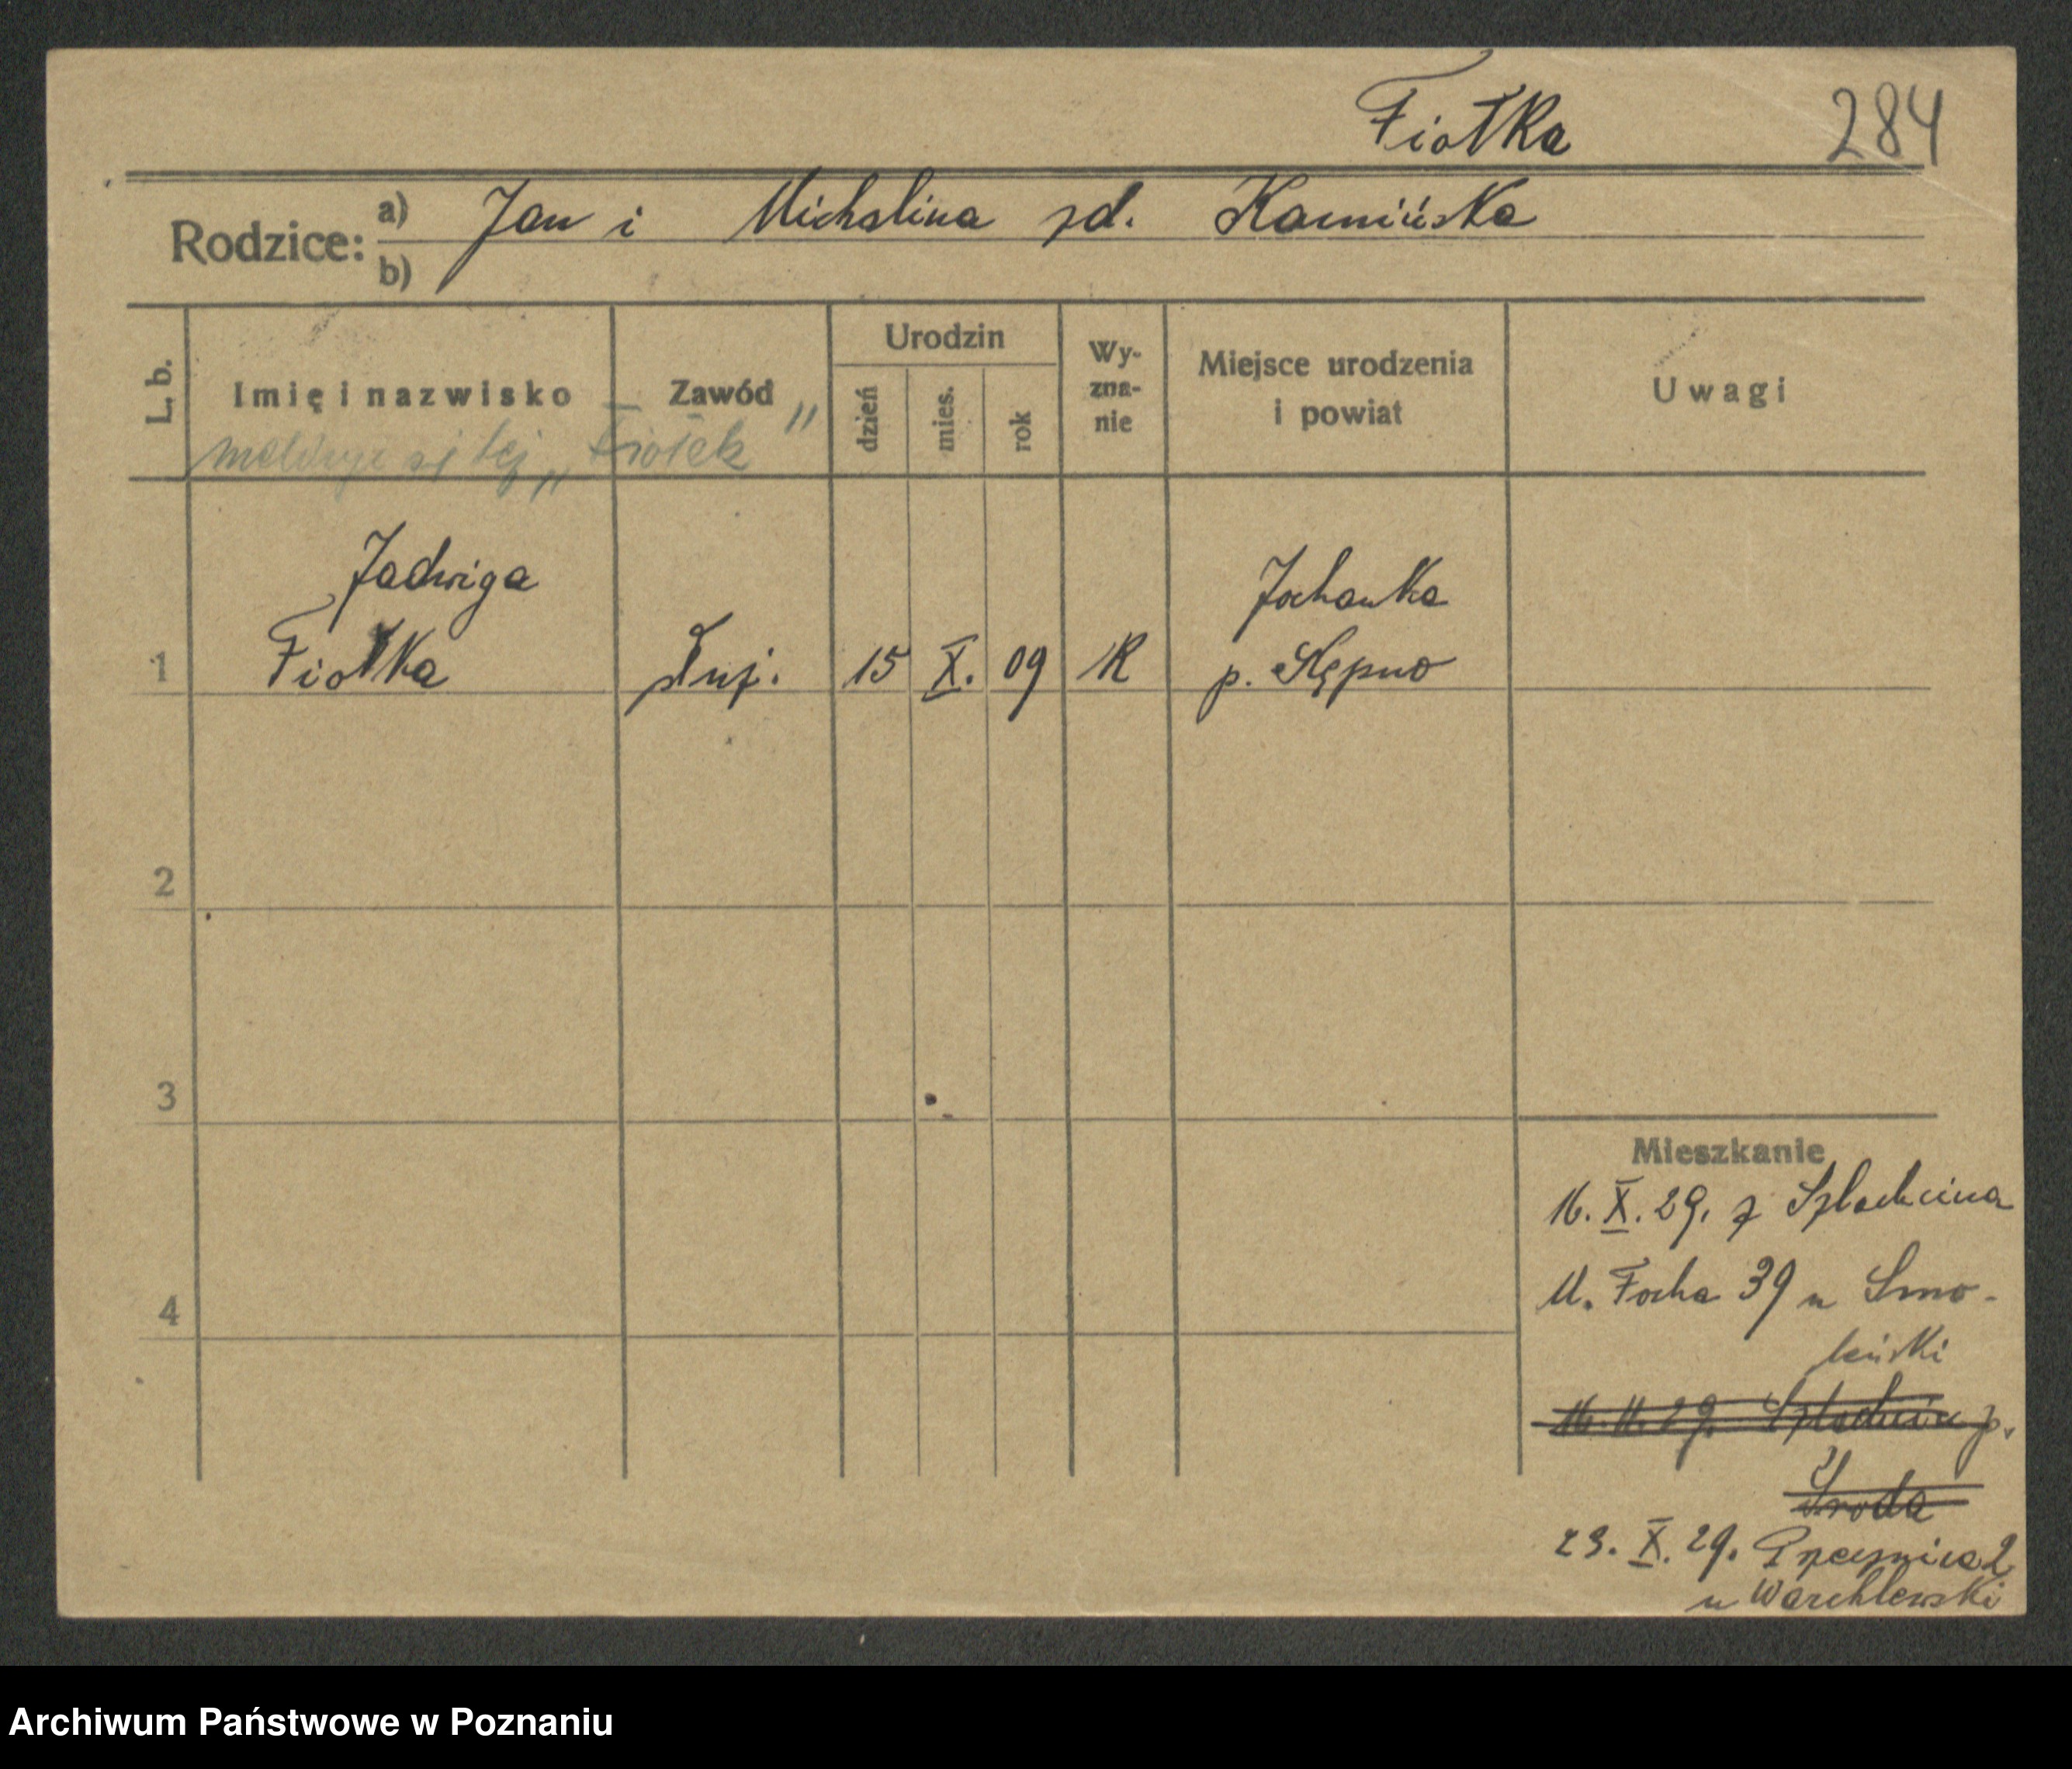 Fiołka 284
Rodzice: a) Jan i Michalina zd. Kamińska
b)
L. b. Imię i nazwisko Zawód Urodzin dzień mies. rok Wy-zna-nie Miejsce urodzenia i powiat Uwagi
melduje się też „Fiołek”
Jadwiga Jochanka
1 Fiołka służ. 15 X. 09 R p. Kępno
2
3
4
Mieszkanie
16. X. 29. z Szlachcina
M. Focha 39 u Smo-
leński
16. 11. 29. Szlachcin p.
Środa
23. X. 29. Przecznica 2
u Warchlewski
Archiwum Państwowe w Poznaniu